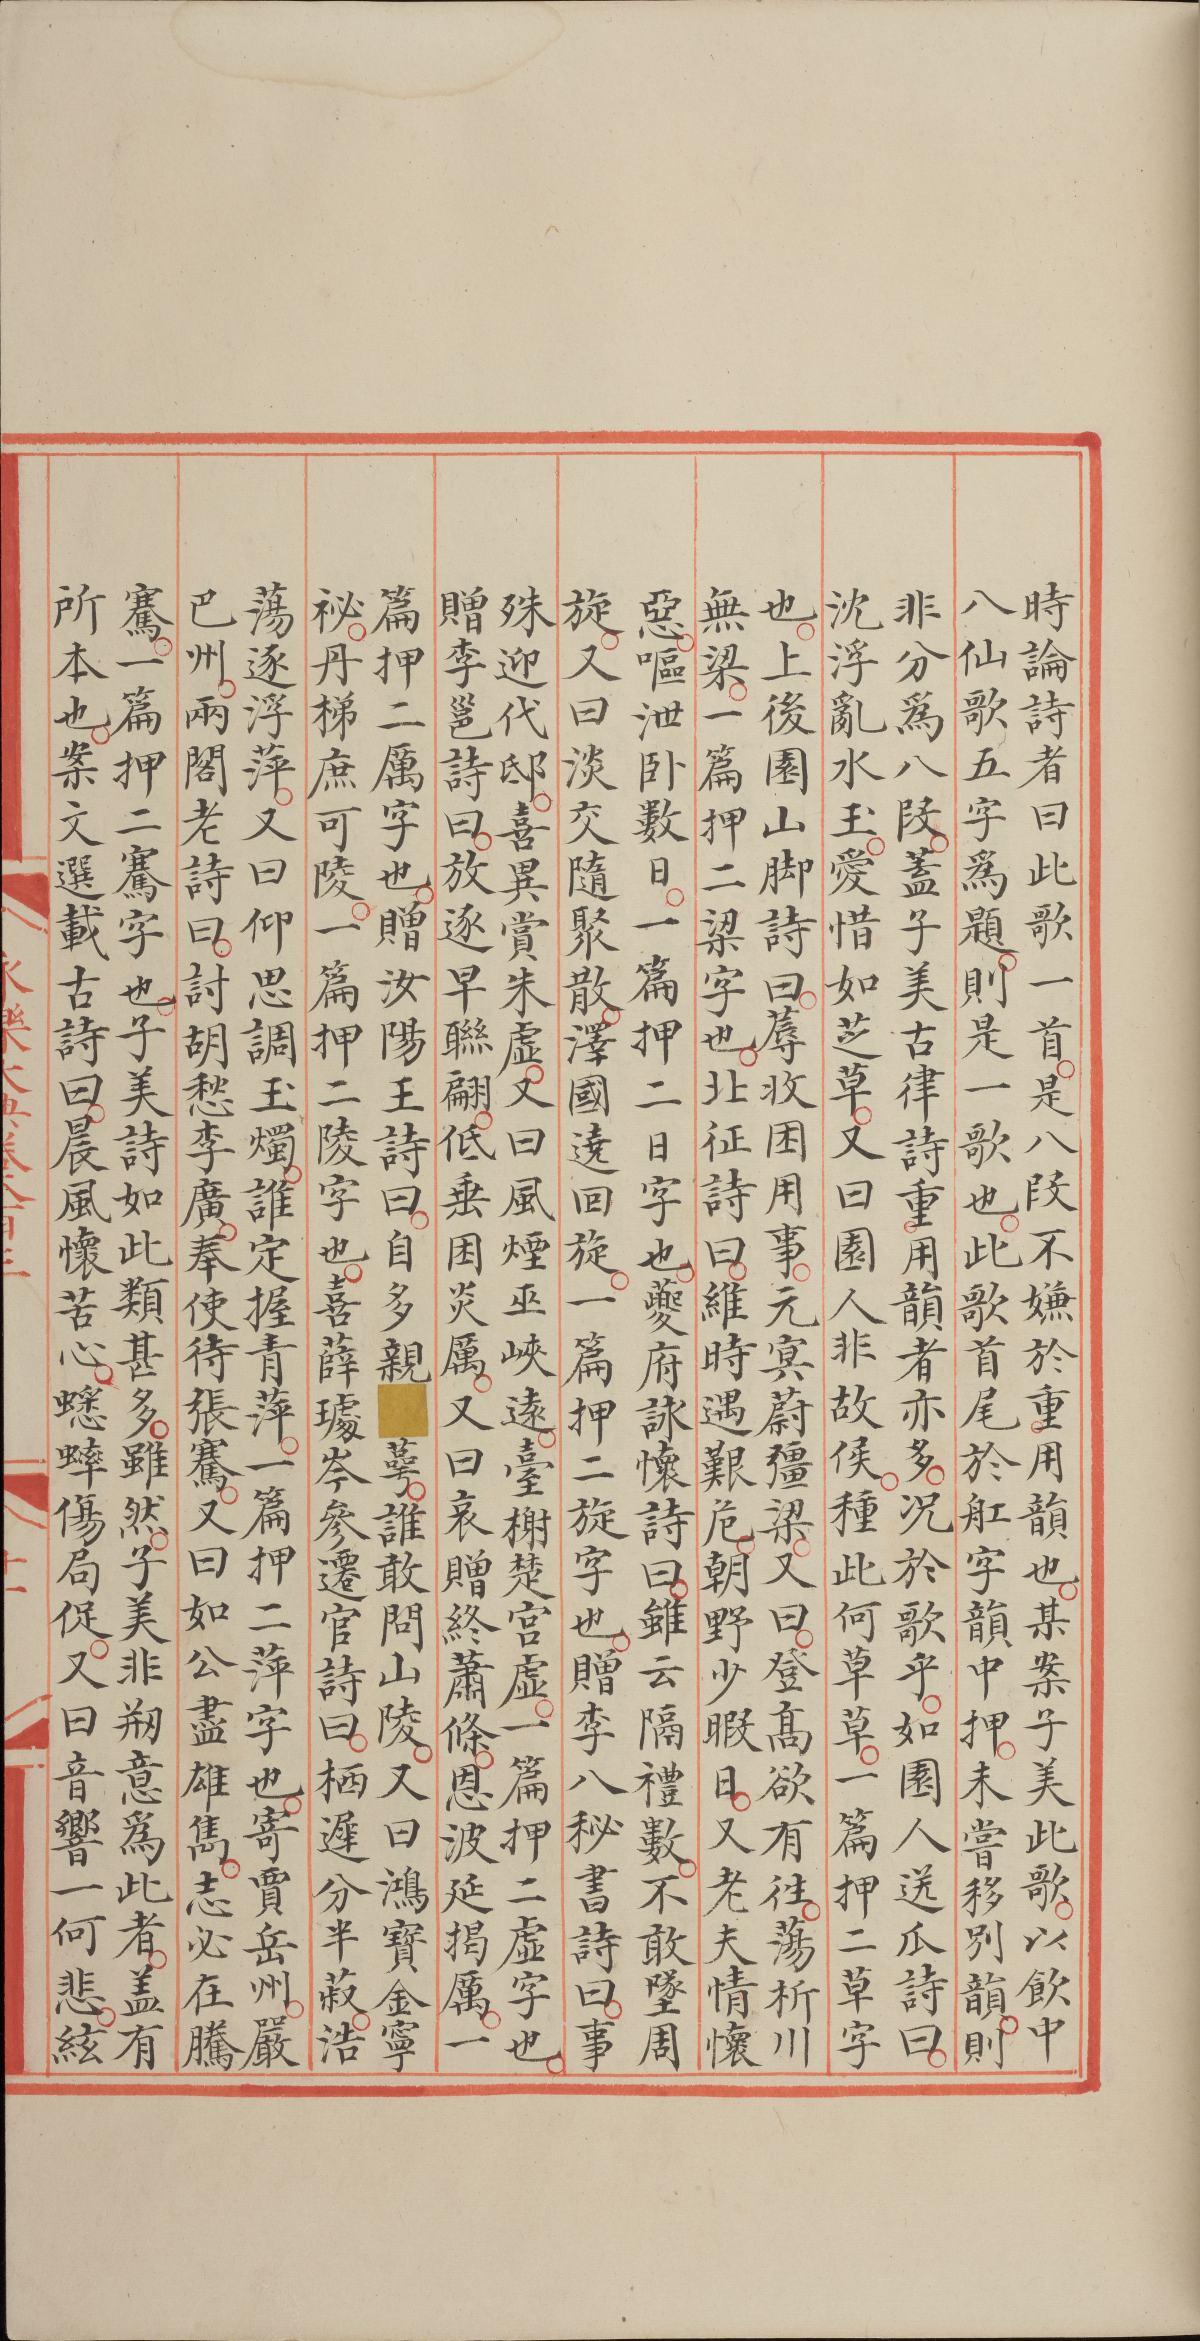 時論詩者曰此歌一首是八段不嫌於重用韻也某案子美此歌以飲中
八仙歌五字爲題則是一歌也此歌首尾於舡字韻中押未嘗移別韻則
非分爲八段蓋子美古律詩重用韻者亦多况於歌乎如園人送瓜詩曰
沈浮亂水玉愛惜如芝草又曰園人非故侯種此何草草一篇押二草字
也上後園山脚詩曰蓐收困用事元冥蔚彊梁又曰登髙欲有往蕩析川
無梁一篇押二梁字也北征詩曰維時遇艱危朝野少暇日又老夫情懷
惡嘔泄卧數日一篇押二日字也夔府詠懷詩曰雖云隔禮數不敢墜周
旋又曰淡交隨聚散澤國遶回旋一篇押二旋字也贈李八秘書詩曰事
殊迎代邸喜異賞朱虛又曰風煙巫峽遠臺榭楚宫虛一篇押二虛字也
贈李邕詩曰放逐早聯翩低垂困炎厲又曰哀贈終蕭條恩波延揭厲一
篇押二厲字也贈汝陽王詩曰自多親 蕚誰敢問山陵又曰鴻寶金寧
祕丹梯庶可陵一篇押二陵字也喜薛璩岑參遷官詩曰栖遲分半菽浩
蕩逐浮萍又曰仰思調玉燭誰定握青萍一篇押二萍字也寄賈岳州嚴
巴州兩閣老詩曰討胡愁李廣奉使待張騫又曰如公盡雄雋志必在騰
騫一篇押二騫字也子美詩如此類甚多雖然子美非剏意爲此者盖有
所本也案文選載古詩曰晨風懷苦心蟋蟀傷局促又曰音響一何悲絃